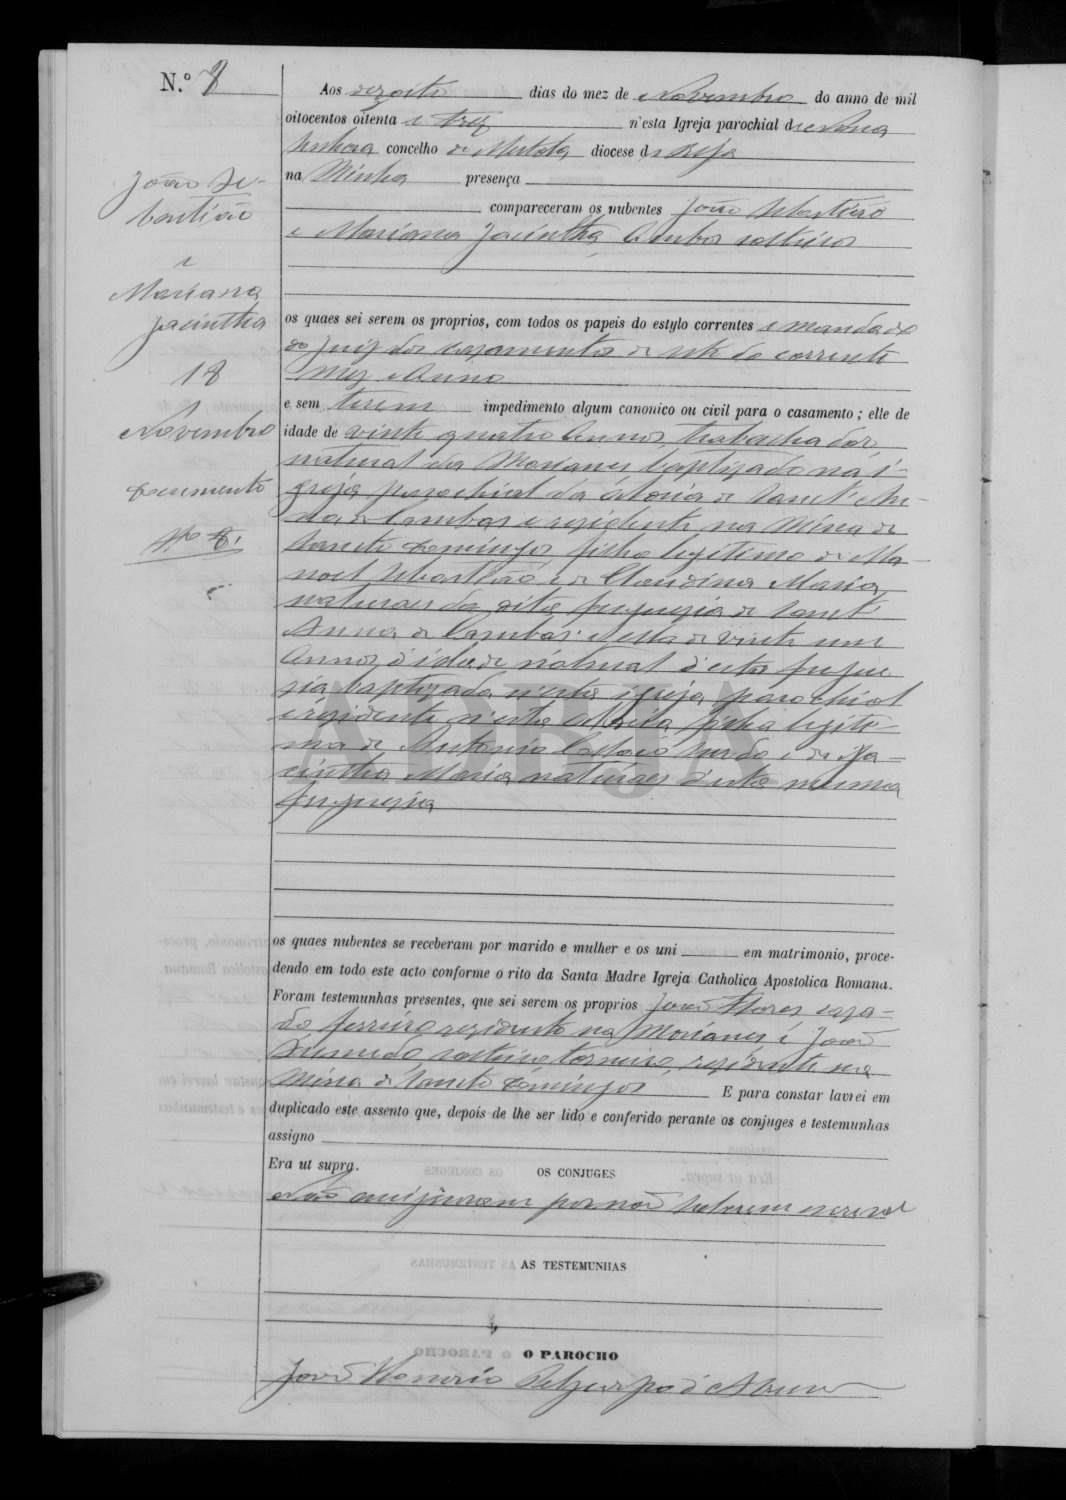 N.º 8
João Se-
bastião
e
Marianna
Jacintha
18
Novembro
Documento
Nº 8.
Aos dezoito dias do mez de Novembro do anno de mil
oitocentos oitenta e trez n'esta Igreja parochial de Nossa
Senhora concelho de Mertola diocese de Beja
na Minha presença
compareceram os nubentes João Sebastião
e Marianna Jacintha, Ambos solteiros
os quaes sei serem os proprios, com todos os papeis do estylo correntes e mandado
do Juiz dos casamentos de sete do corrente
Mez e Anno
e sem terem impedimento algum canonico ou civil para o casamento; elle de
idade de vinte quatro Annos, trabalhador,
natural dos Morianes baptizado na i-
greja parochial da de Sanct'An-
na de Cambas e rezidente na Mina de
Sancto Domingos filho legitimo de Ma-
noel Sebastião e de Claudina Maria,
naturaes da dita freguezia de Sanct'
Anna de Cambas: e ella de vinte um
Annos d'idade natural d'esta fregue
zia baptizada n'esta igreja parochial
e rezidente n'esta filha legiti-
ma de Antonio e de Ja-
cintha Maria, naturaes d'esta mesma
freguezia
ADBJA
os quaes nubentes se receberam por marido e mulher e os uni em matrimonio, proce-
dendo em todo este acto conforme o rito da Santa Madre Igreja Catholica Apostolica Romana.
Foram testemunhas presentes, que sei serem os proprios João casa-
do ferreiro rezidente na Morianes e João
solteiro torneiro, rezidente na
Mina de Sancto Domingos E para constar lavrei em
duplicado este assento que, depois de lhe ser lido e conferido perante os conjuges e testemunhas
assigno
Era ut supra.
OS CONJUGES
Não assignaram por não saberem escrever
AS TESTEMUNHAS
O PAROCHO
João d'Abreu